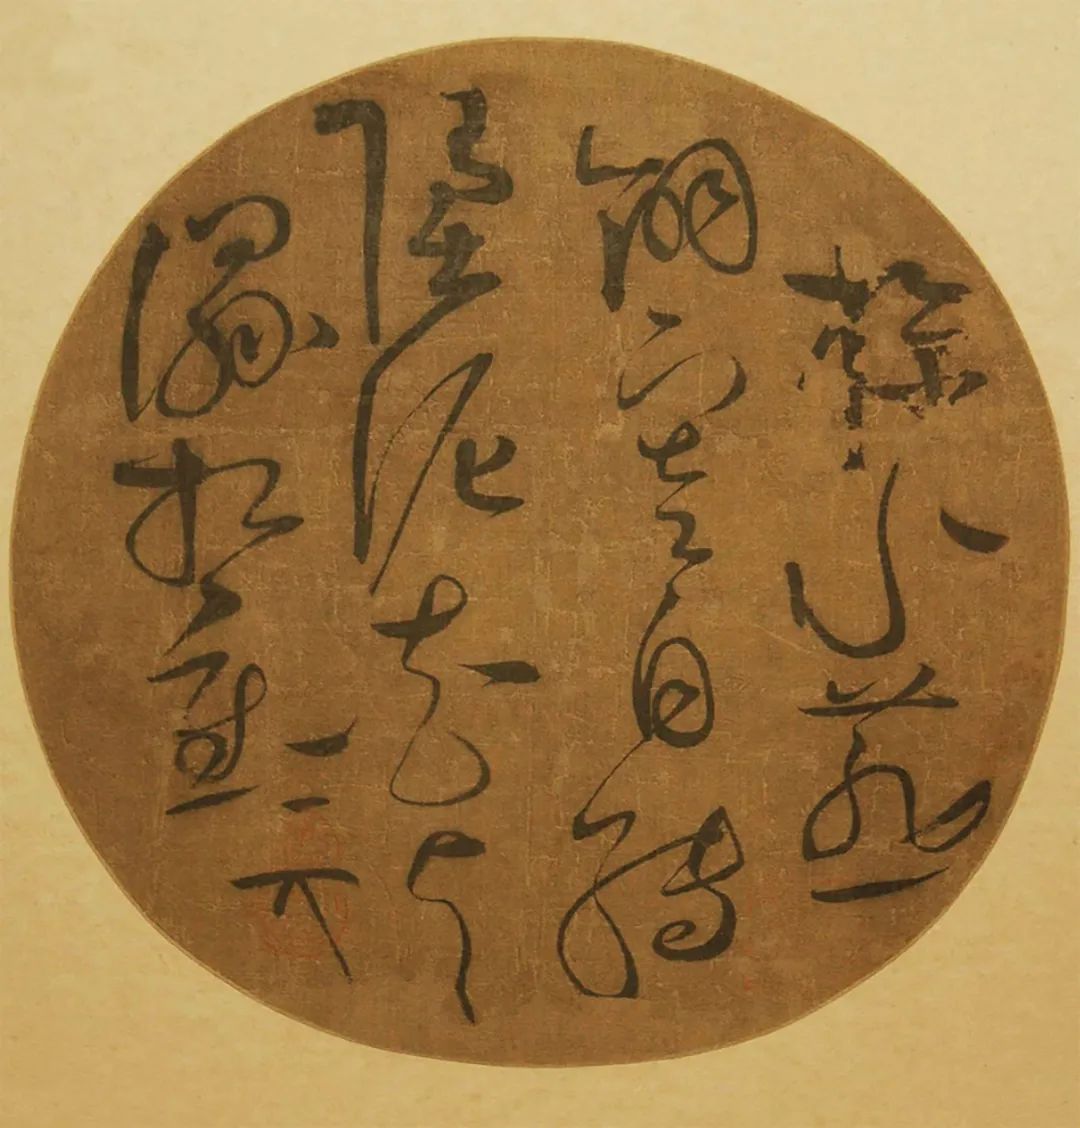 掠水燕
翎寒自轉
墮泥花片
濕相重
天下一人